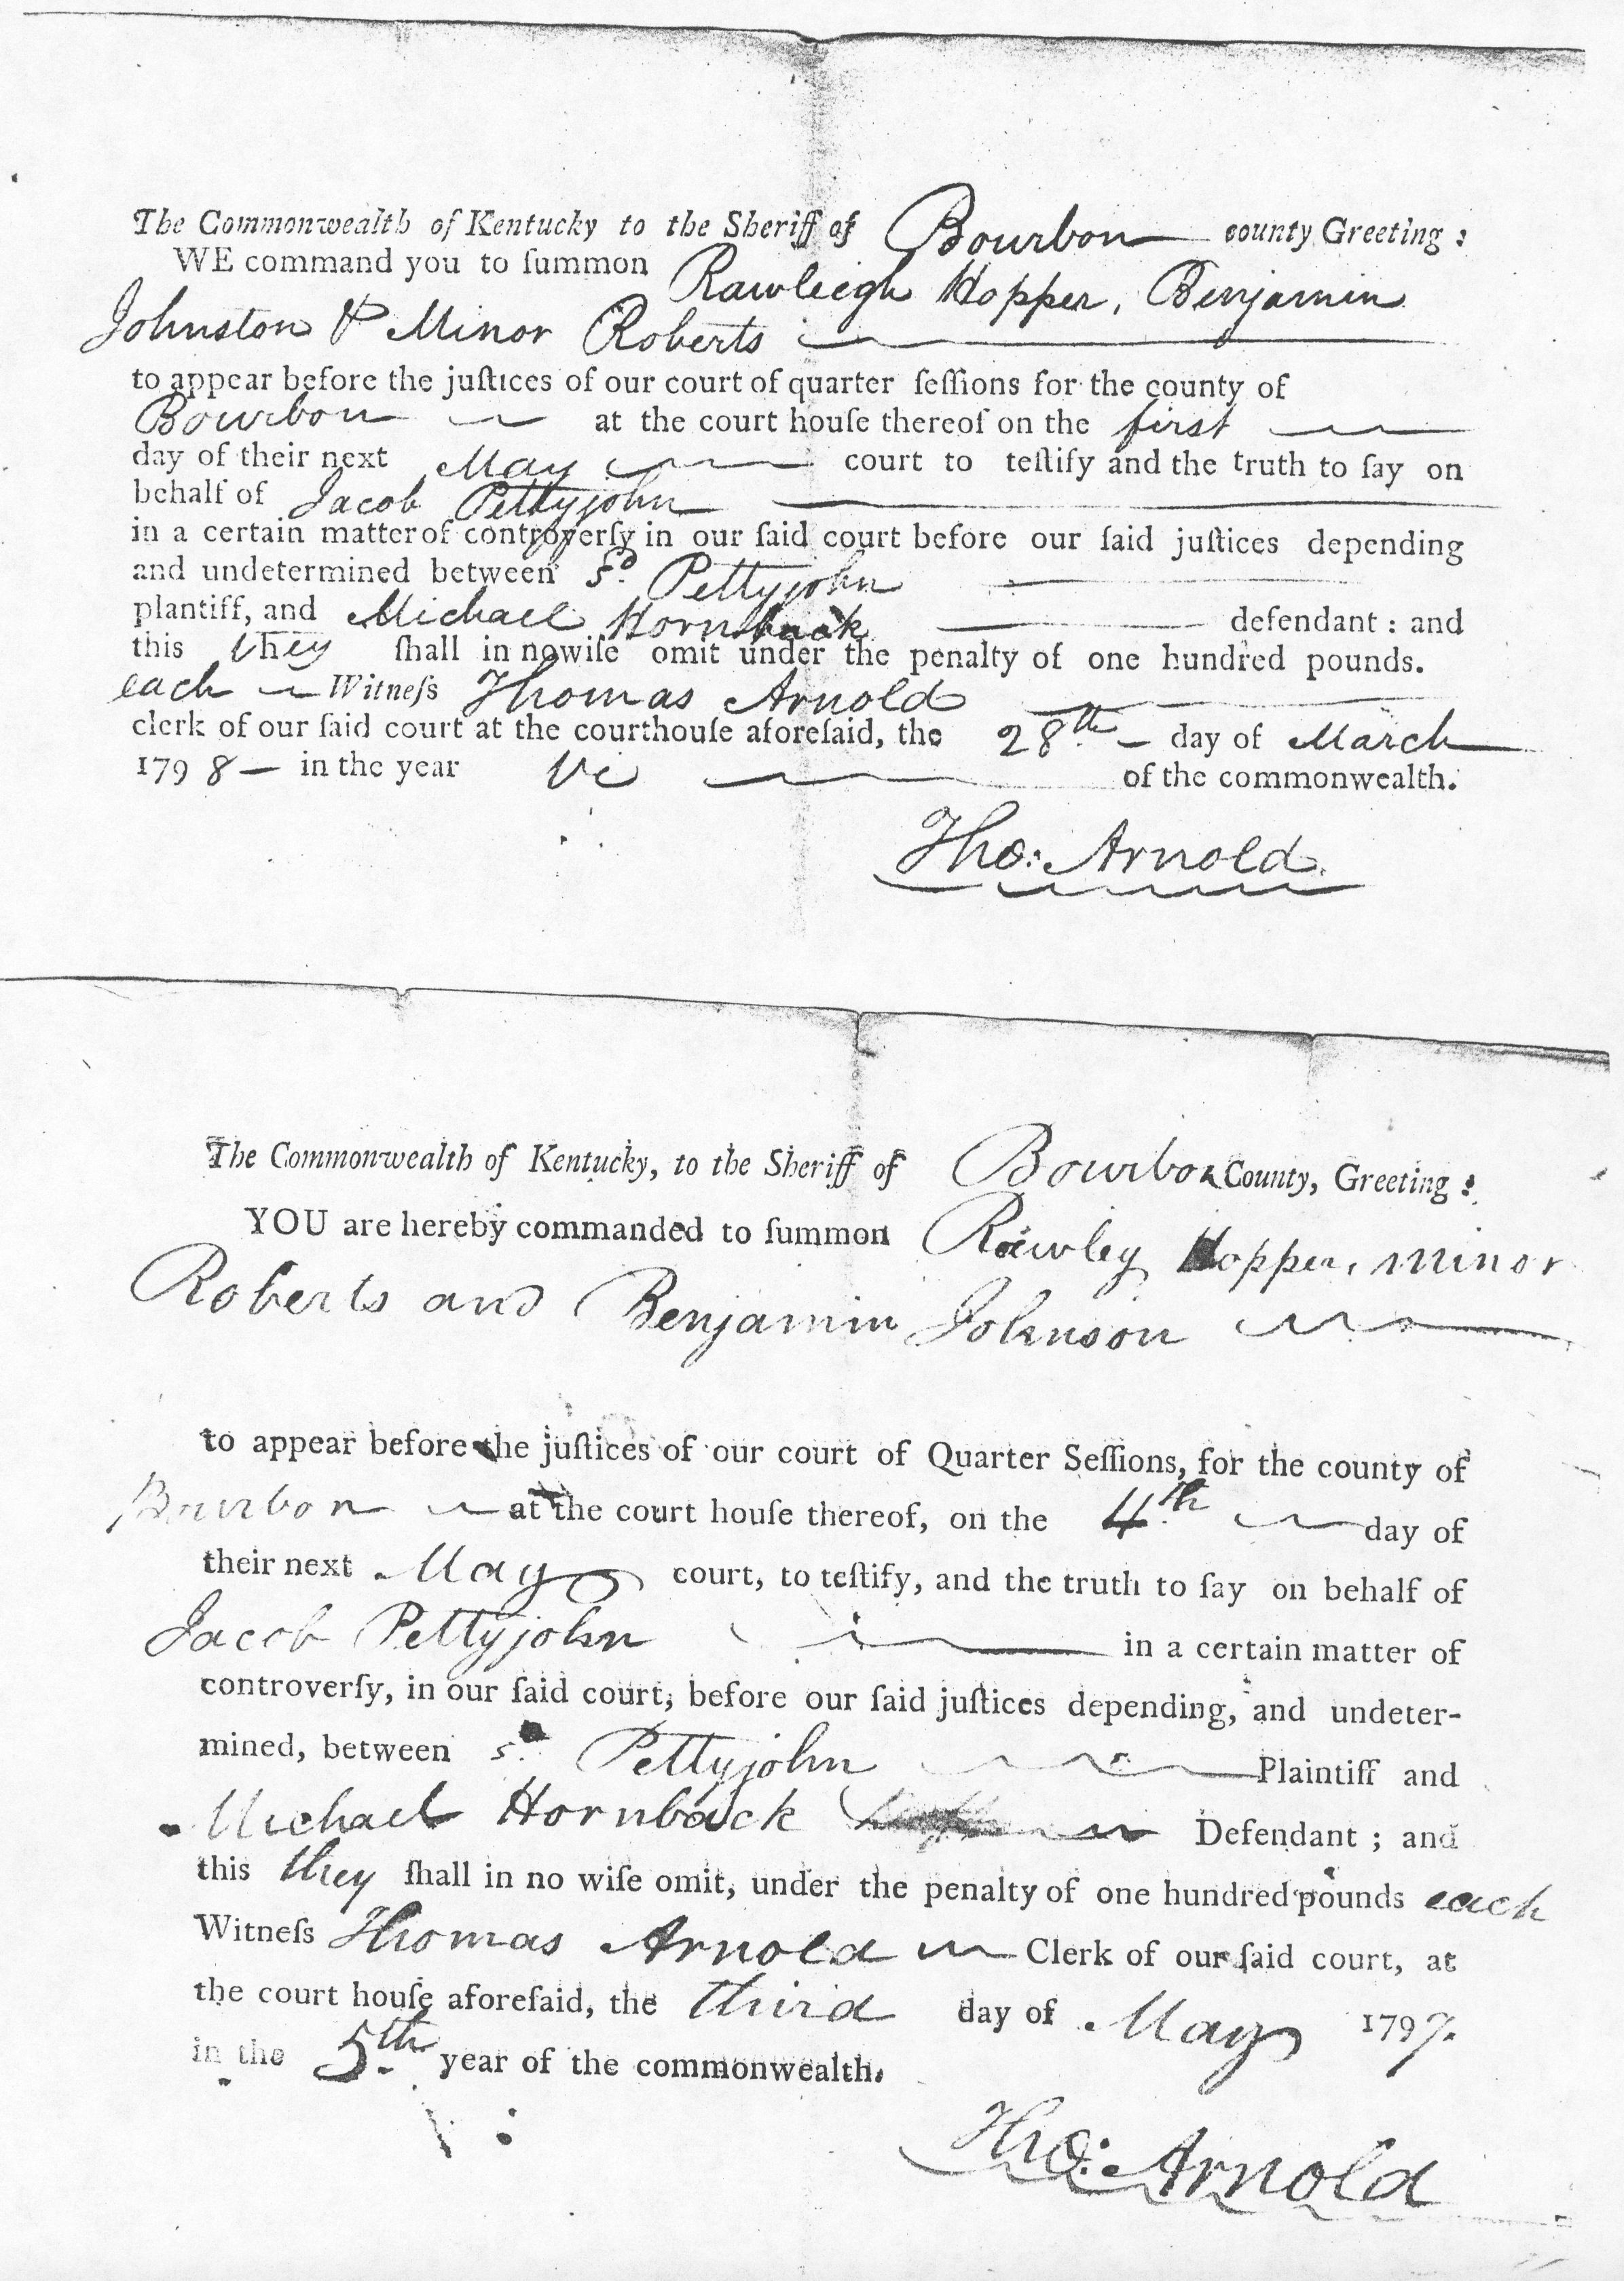 The Commonwealth of Kentucky to the Sheriff of Bourbon county Greeting:
WE command you to ſummon Rawleigh Hopper, Benjamin
Johnston & Minor Roberts
to appear before the juſtices of our court of quarter ſeſſions for the county of
Bourbon at the court houſe thereof on the first
day of their next May court to teſtify and the truth to ſay on
behalf of Jacob Pettyjohn
in a certain matter of controverſy in our ſaid court before our ſaid juſtices depending
and undetermined between sd. Pettyjohn
plantiff, and Michael Hornback defendant: and
this they ſhall in nowiſe omit under the penalty of one hundred pounds.
each Witneſs Thomas Arnold
clerk of our ſaid court at the courthouſe aforeſaid, the 28th day of March
1798 in the year vi of the commonwealth.
Tho: Arnold
The Commonwealth of Kentucky, to the Sheriff of Bourbon County, Greeting:
YOU are hereby commanded to ſummon Rawley Hopper, Minor
Roberts and Benjamin Johnson
to appear before the juſtices of our court of Quarter Seſſions, for the county of
Bourbon at the court houſe thereof, on the 4th day of
their next May court, to teſtify, and the truth to ſay on behalf of
Jacob Pettyjohn in a certain matter of
controverſy, in our ſaid court, before our ſaid juſtices depending, and undeter-
mined, between sd. Pettyjohn Plaintiff and
Michael Hornback Defendant; and
this they ſhall in no wiſe omit, under the penalty of one hundred pounds each
Witneſs Thomas Arnold Clerk of our ſaid court, at
the court houſe aforeſaid, the third day of May 1797.
in the 5th year of the commonwealth.
Tho: Arnold